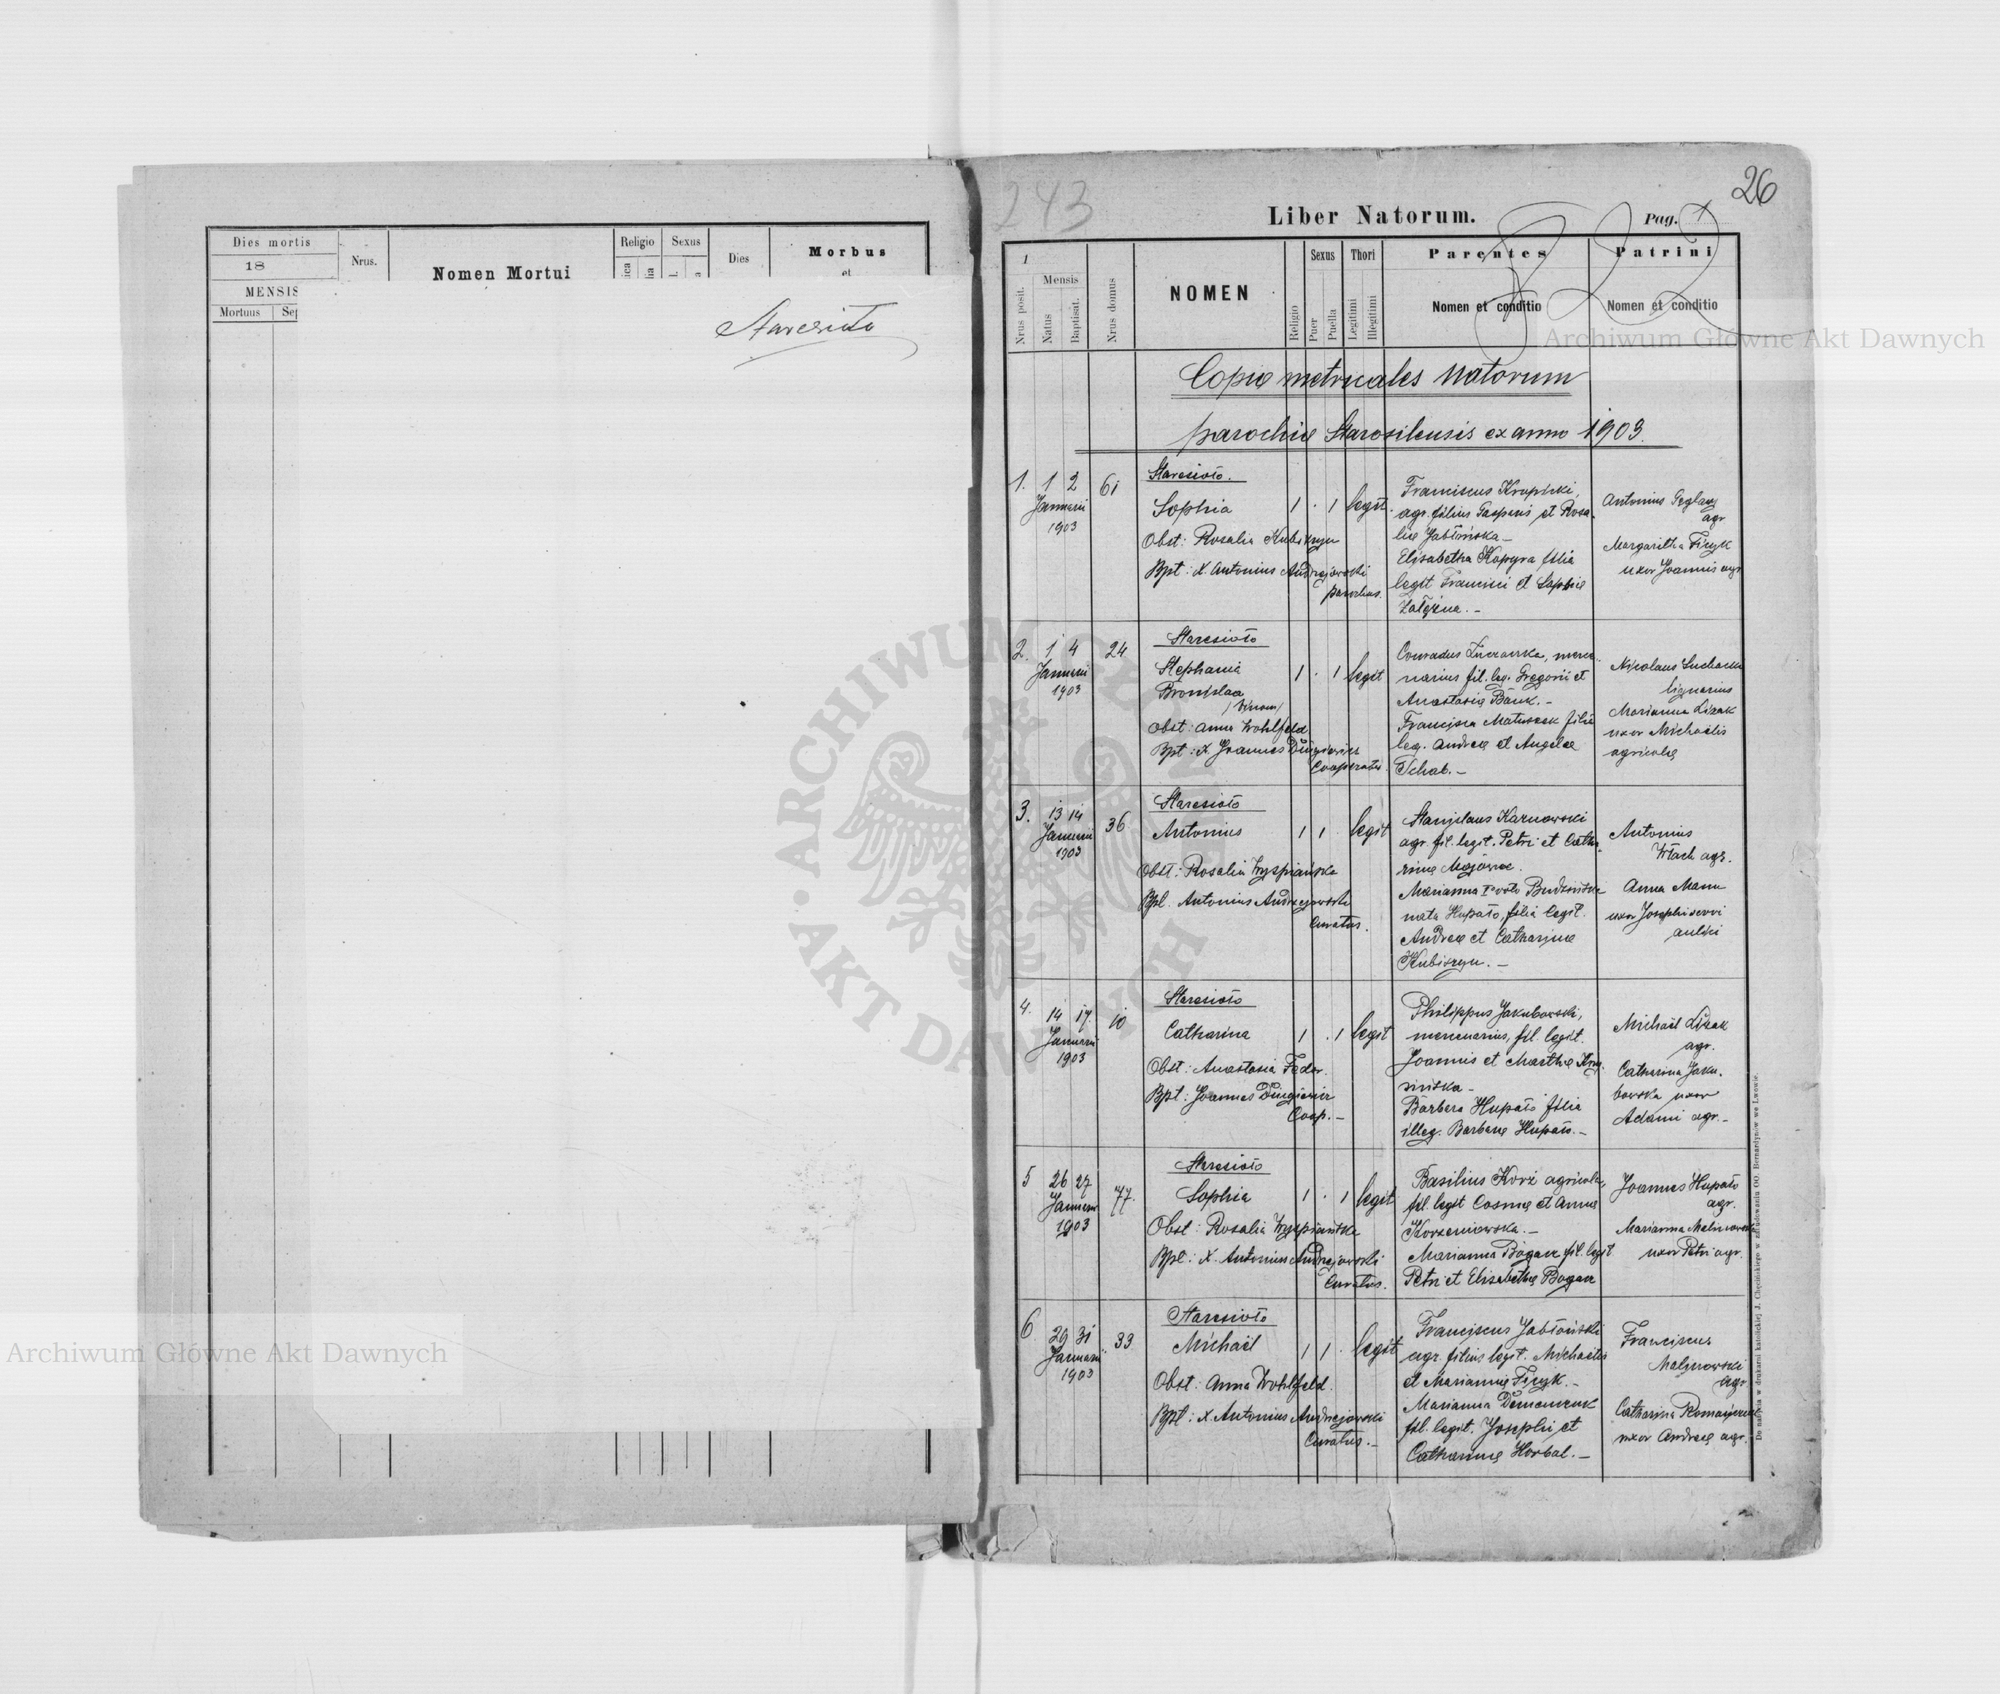 Dies mortis
18
MENSIS
Mortuus
Nrus.
Nomen Mortui
Religio
Sexus
Dies
Morbus
et
Staresioło
243
26
Liber Natorum.
Pag. 1
822
1
Nrus posit.
Mensis
Natus
Baptisat.
Nrus domus
NOMEN
Religio
Sexus
Puer
Puella
Thori
Legitimi
Illegitimi
Parentes
Nomen et conditio
Patrini
Nomen et conditio
Copiæ metricales Natorum
parochiæ Starosilensis ex anno 1903.
1. 1 2
Januarii
1903
61
Staresioło.
Sophia
1 . 1 legit.
Obst: Rosalia Kubiszyn
Bpt: X. Antonius Andrzejowski
parochus.
Franciscus Krupicki,
agr. filius Gasparis et Rosa-
liæ Jabłońska_
Elisabetha Kopyra filia
legit Francisci et Sophiæ
Załężna._
Antonius
agr
Margaritha Fizyk
uxor Joannis agr.
2. 1 4
Januarii
1903
24
Staresioło
Stephania
Bronislaa
/binom/
1 . 1 legit
Obst: Anna Wohlfeld
Bpt: X. Joannes
Cooperator.
Conradus
narius fil. leg. Gregorii et
Anastasiæ
Francisca Matuszek filia
leg. Andreæ et Angelæ
Schab._
Nicolaus
lignarius
Marianna Lizak
uxor Michaelis
agricolæ
3. 13 14
Januarii
1903
36
Staresioło
Antonius
1 1 . legit
Obst: Rosalia Wyspiańska
Bpt. Antonius Andrzejowski
Curatus.
Stanislaus Karnowski
agr. fil. legit. Petri et Catha-
rinæ
Marianna 1º voto Budzińska
nata Hupało, filia legit.
Andreæ et Catharinæ
Kubiszyn._
Antonius
Wlach agr.
Anna Mann
uxor Josephi servi
aulici
4. 14 17.
Januarii
1903
10
Staresioło
Catharina
1 . 1 legit
Obst: Anastasia Fedor.
Bpt: Joannes
Coop._
Philippus Jakubowski,
mercenarius, fil. legit.
Joannis et Marthæ
Barbara Hupało filia
illeg. Barbaræ Hupało._
Michaël Lizak
agr.
Catharina Jaku-
bowska uxor
Adami agr._
5 26 27
Januarii
1903
77.
Staresioło
Sophia
1 . 1 legit
Obst: Rosalia Wyspiańska
Bpt: X. Antonius Andrzejowski
Curatus.
Basilius Korż agricola,
fil. legit Cosmæ et Annæ
Korzeniowska._
Marianna Bogacz fil. legit
Petri et Elisabethæ Bogacz
Joannes Hupało
agr.
Marianna Malinowska
uxor Petri agr.
6 29 31
Januarii
1903
33
Staresioło
Michaël
1 1 . legit
Obst: Anna Wohlfeld.
Bpt: X. Antonius Andrzejowski
Curatus._
Franciscus Jabłoński
agr. filius legit. Michaelis
et Mariannæ Fizyk._
Marianna
fil. legit. Josephi et
Catharinæ Horbal._
Franciscus
Malinowski
agr
Catharina
uxor Andreæ agr.
Do nabycia w drukarni katolickiej J. Chęcińskiego w zabudowaniu OO. Bernardynów we Lwowie.
Archiwum Główne Akt Dawnych
Archiwum Główne Akt Dawnych
ARCHIWUM GŁÓWNE
AKT DAWNYCH